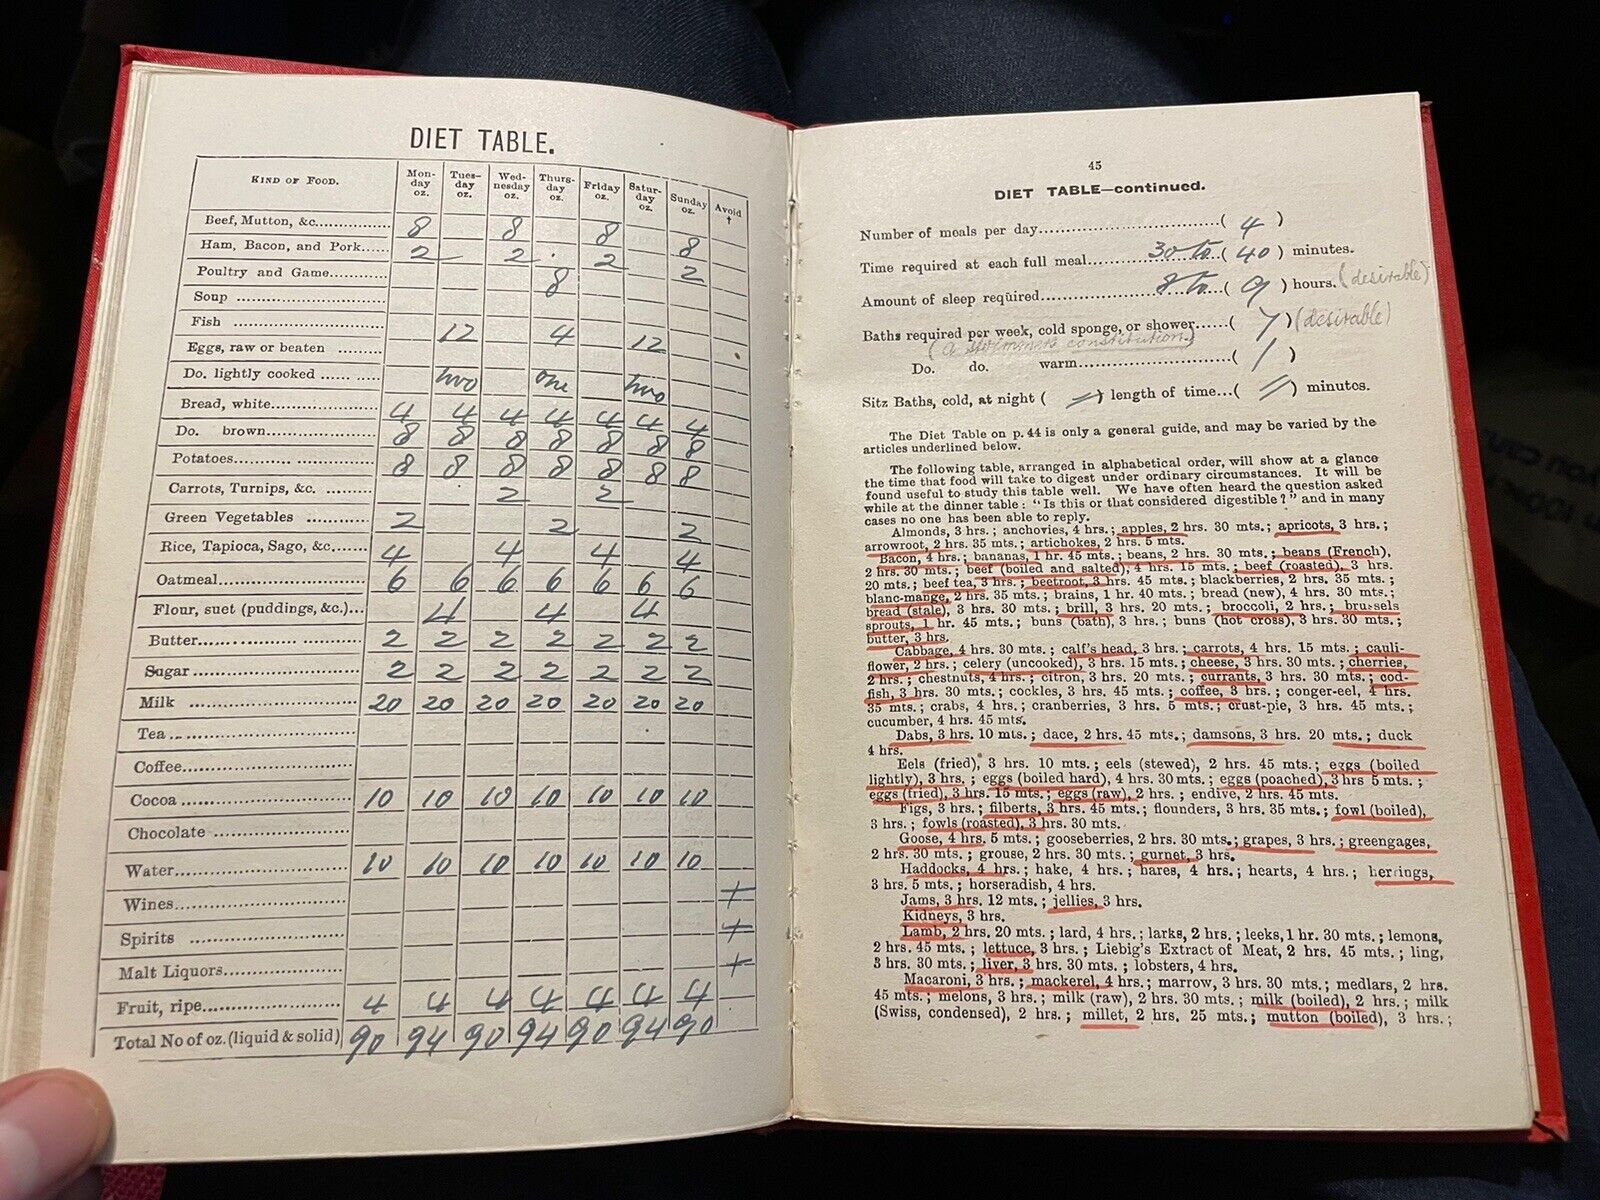 DIET TABLE.
KIND OF FOOD. Mon-day oz. Tues-day oz. Wed-nesday oz. Thurs-day oz. Friday oz. Satur-day oz. Sunday oz. Avoid †
Beef, Mutton, &c. 8 8 8 8
Ham, Bacon, and Pork 2 2 2 2
Poultry and Game 8
Soup
Fish 12 4 12
Eggs, raw or beaten
Do. lightly cooked two one two
Bread, white 4 4 4 4 4 4 4
Do. brown 8 8 8 8 8 8 8
Potatoes 8 8 8 8 8 8 8
Carrots, Turnips, &c. 2 2
Green Vegetables 2 2 2
Rice, Tapioca, Sago, &c. 4 4 4 4
Oatmeal 6 6 6 6 6 6 6
Flour, suet (puddings, &c.) 4 4 4
Butter 2 2 2 2 2 2 2
Sugar 2 2 2 2 2 2 2
Milk 20 20 20 20 20 20 20
Tea
Coffee
Cocoa 10 10 10 10 10 10 10
Chocolate
Water 10 10 10 10 10 10 10
Wines +
Spirits +
Malt Liquors +
Fruit, ripe 4 4 4 4 4 4 4
Total No of oz. (liquid & solid) 90 94 90 94 90 94 90
45
DIET TABLE—continued.
Number of meals per day ( 4 )
Time required at each full meal 30 to ( 40 ) minutes.
Amount of sleep required 8 to ( 9 ) hours. (desirable)
Baths required per week, cold sponge, or shower ( 7 ) (desirable)
(a swimmers constitution)
Do. do. warm ( 1 )
Sitz Baths, cold, at night ( = ) length of time ( = ) minutes.
The Diet Table on p. 44 is only a general guide, and may be varied by the
articles underlined below.
The following table, arranged in alphabetical order, will show at a glance
the time that food will take to digest under ordinary circumstances. It will be
found useful to study this table well. We have often heard the question asked
while at the dinner table: "Is this or that considered digestible?" and in many
cases no one has been able to reply.
Almonds, 3 hrs.; anchovies, 4 hrs.; apples, 2 hrs. 30 mts.; apricots, 3 hrs.;
arrowroot, 2 hrs. 35 mts.; artichokes, 2 hrs. 5 mts.
Bacon, 4 hrs.; bananas, 1 hr. 45 mts.; beans, 2 hrs. 30 mts.; beans (French),
2 hrs. 30 mts.; beef (boiled and salted), 4 hrs. 15 mts.; beef (roasted), 3 hrs.
20 mts.; beef tea, 3 hrs.; beetroot, 3 hrs. 45 mts.; blackberries, 2 hrs. 35 mts.;
blanc-mange, 2 hrs. 35 mts.; brains, 1 hr. 40 mts.; bread (new), 4 hrs. 30 mts.;
bread (stale), 3 hrs. 30 mts.; brill, 3 hrs. 20 mts.; broccoli, 2 hrs.; brussels
sprouts, 1 hr. 45 mts.; buns (bath), 3 hrs.; buns (hot cross), 3 hrs. 30 mts.;
butter, 3 hrs.
Cabbage, 4 hrs. 30 mts.; calf's head, 3 hrs.; carrots, 4 hrs. 15 mts.; cauli-
flower, 2 hrs.; celery (uncooked), 3 hrs. 15 mts.; cheese, 3 hrs. 30 mts.; cherries,
2 hrs.; chestnuts, 4 hrs.; citron, 3 hrs. 20 mts.; currants, 3 hrs. 30 mts.; cod-
fish, 3 hrs. 30 mts.; cockles, 3 hrs. 45 mts.; coffee, 3 hrs.; conger-eel, 4 hrs.
35 mts.; crabs, 4 hrs.; cranberries, 3 hrs. 5 mts.; crust-pie, 3 hrs. 45 mts.;
cucumber, 4 hrs. 45 mts.
Dabs, 3 hrs. 10 mts.; dace, 2 hrs. 45 mts.; damsons, 3 hrs. 20 mts.; duck
4 hrs.
Eels (fried), 3 hrs. 10 mts.; eels (stewed), 2 hrs. 45 mts.; eggs (boiled
lightly), 3 hrs.; eggs (boiled hard), 4 hrs. 30 mts.; eggs (poached), 3 hrs 5 mts.;
eggs (fried), 3 hrs. 15 mts.; eggs (raw), 2 hrs.; endive, 2 hrs. 45 mts.
Figs, 3 hrs.; filberts, 3 hrs. 45 mts.; flounders, 3 hrs. 35 mts.; fowl (boiled),
3 hrs.; fowls (roasted), 3 hrs. 30 mts.
Goose, 4 hrs. 5 mts.; gooseberries, 2 hrs. 30 mts.; grapes, 3 hrs.; greengages,
2 hrs. 30 mts.; grouse, 2 hrs. 30 mts.; gurnet, 3 hrs.
Haddocks, 4 hrs.; hake, 4 hrs.; hares, 4 hrs.; hearts, 4 hrs.; herrings,
3 hrs. 5 mts.; horseradish, 4 hrs.
Jams, 3 hrs. 12 mts.; jellies, 3 hrs.
Kidneys, 3 hrs.
Lamb, 2 hrs. 20 mts.; lard, 4 hrs.; larks, 2 hrs.; leeks, 1 hr. 30 mts.; lemons,
2 hrs. 45 mts.; lettuce, 3 hrs.; Liebig's Extract of Meat, 2 hrs. 45 mts.; ling,
3 hrs. 30 mts.; liver, 3 hrs. 30 mts.; lobsters, 4 hrs.
Macaroni, 3 hrs.; mackerel, 4 hrs.; marrow, 3 hrs. 30 mts.; medlars, 2 hrs.
45 mts.; melons, 3 hrs.; milk (raw), 2 hrs. 30 mts.; milk (boiled), 2 hrs.; milk
(Swiss, condensed), 2 hrs.; millet, 2 hrs. 25 mts.; mutton (boiled), 3 hrs.;